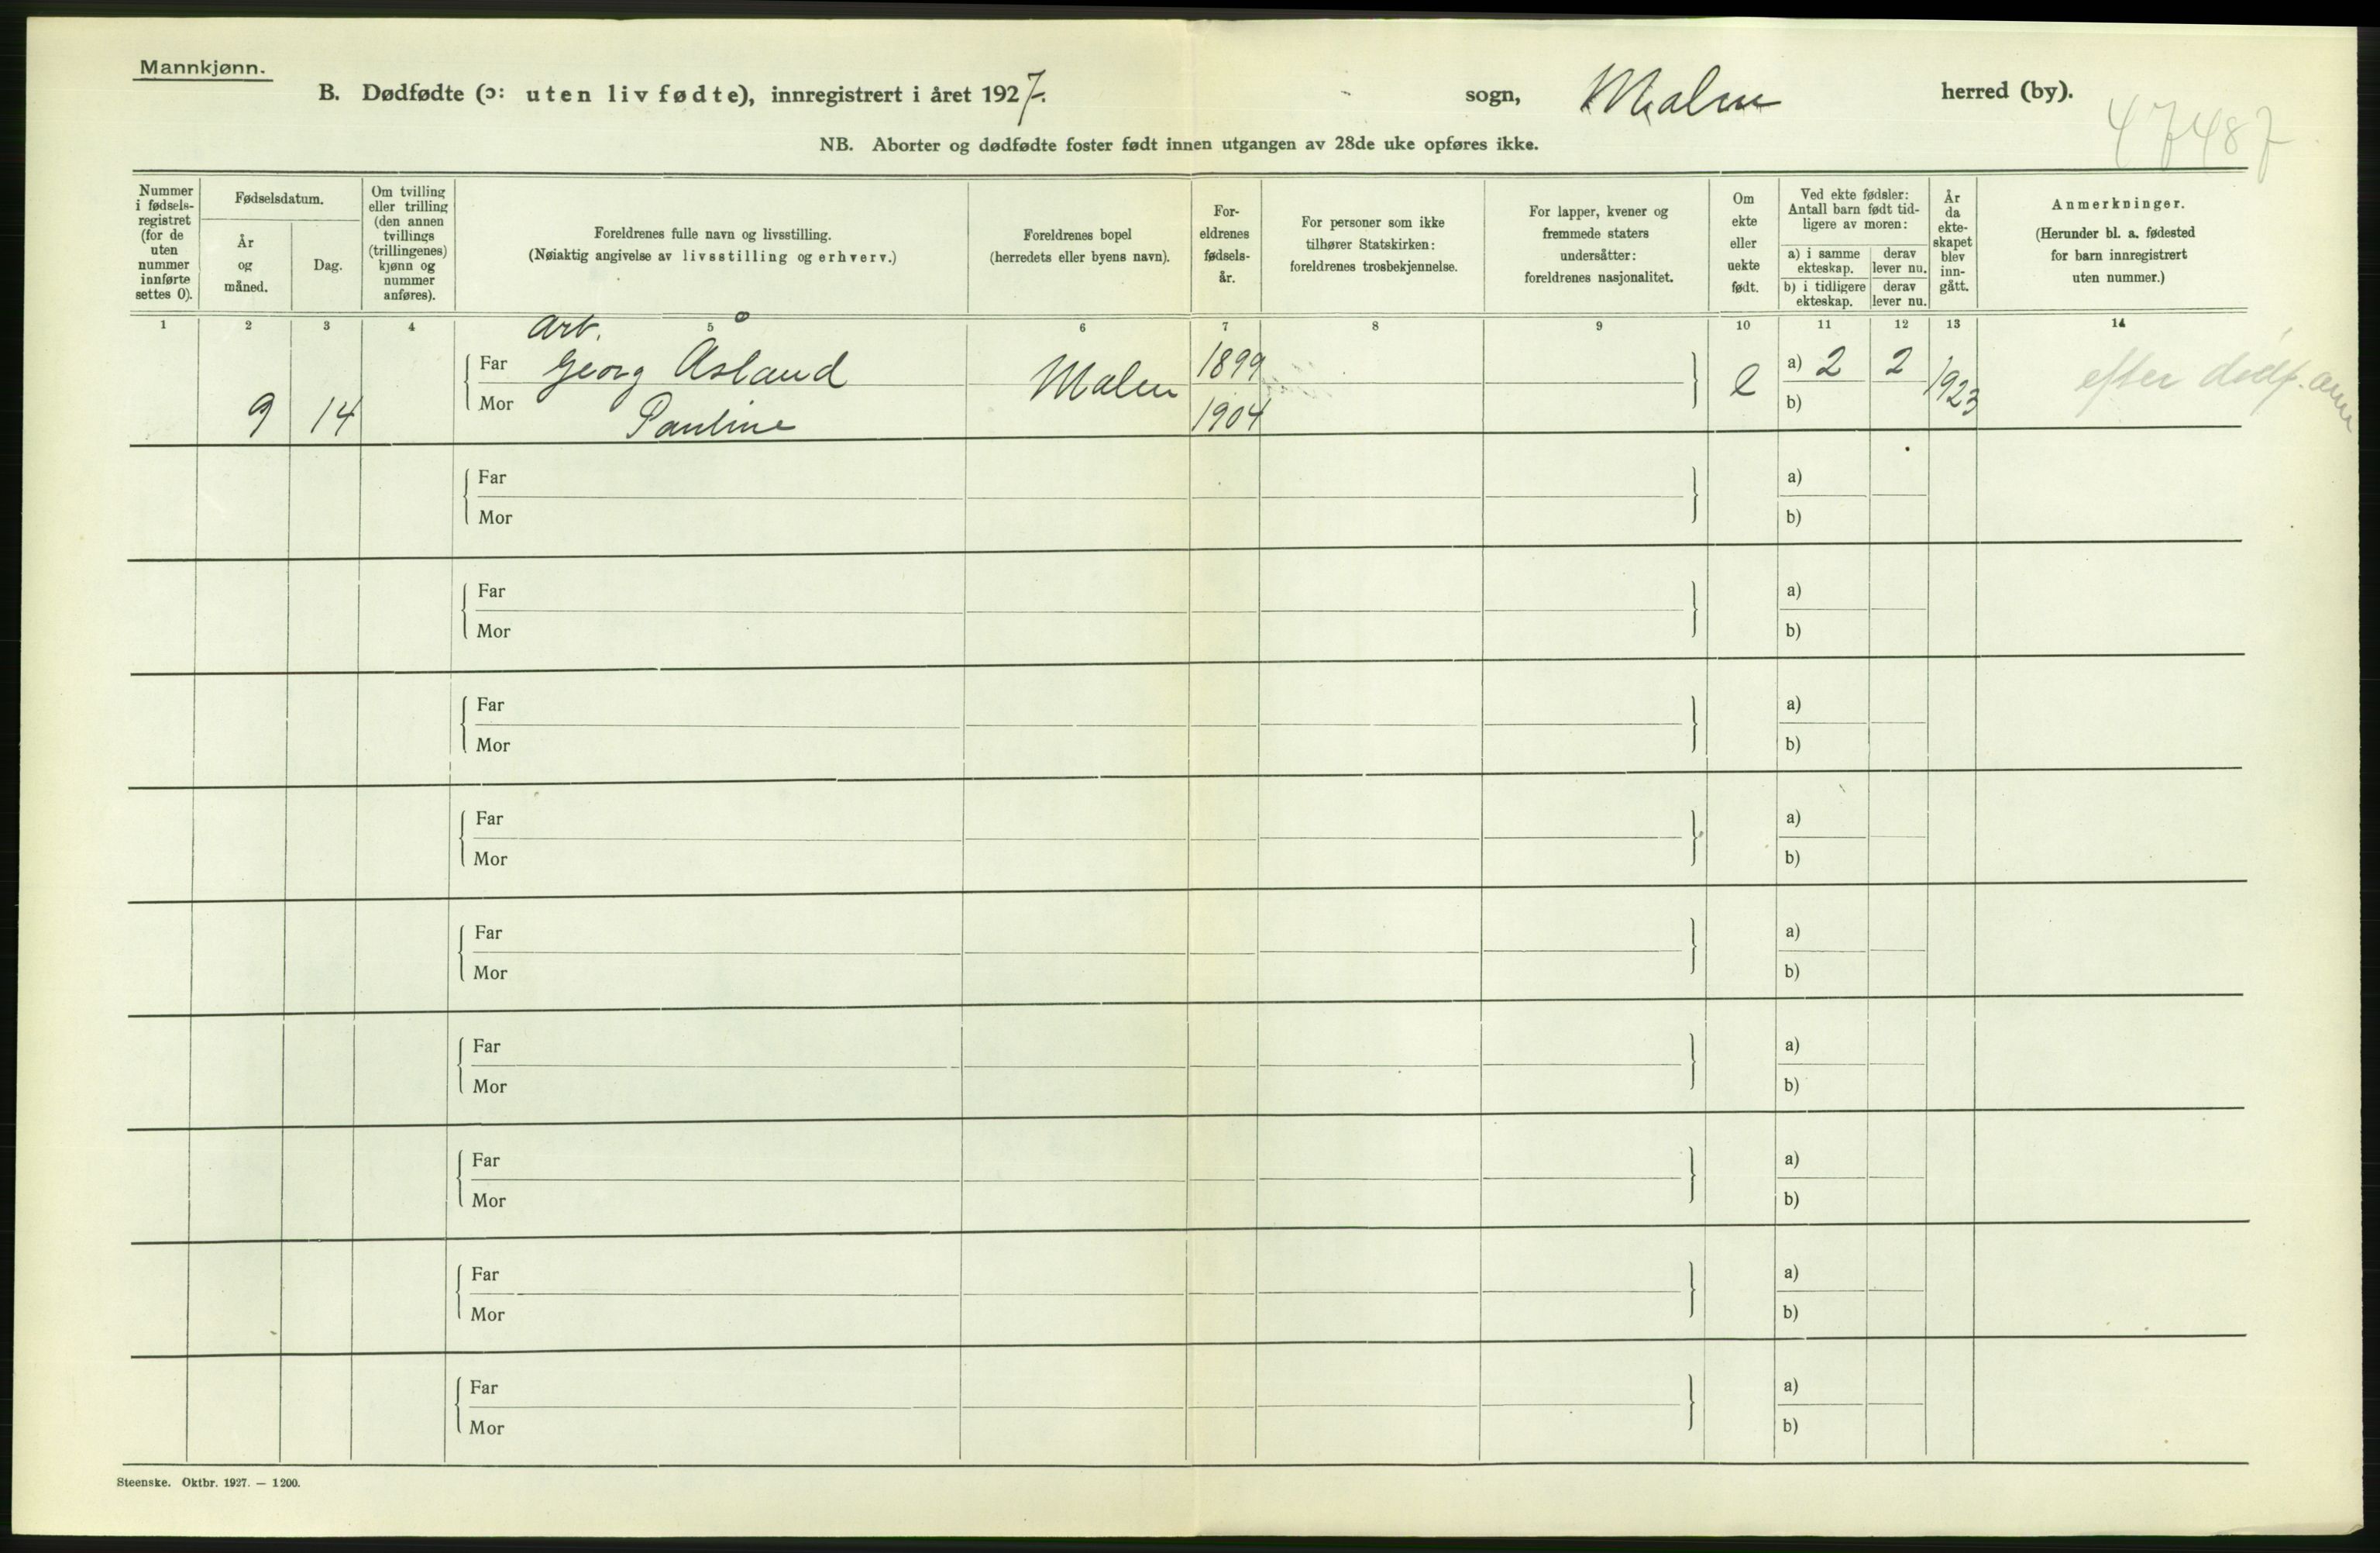 Mannkjønn.
B. Dødfødte (ɔ: uten liv fødte), innregistrert i året 1927. sogn, Malm herred (by).
47487
NB. Aborter og dødfødte foster født innen utgangen av 28de uke opføres ikke.
Nummer i fødsels-registret (for de uten nummer innførte settes 0).
Fødselsdatum.
År og måned.
Dag.
Om tvilling eller trilling (den annen tvillings (trillingenes) kjønn og nummer anføres).
Foreldrenes fulle navn og livsstilling.
(Nøiaktig angivelse av livsstilling og erhverv.)
Foreldrenes bopel
(herredets eller byens navn).
For-eldrenes fødsels-år.
For personer som ikke tilhører Statskirken: foreldrenes trosbekjennelse.
For lapper, kvener og fremmede staters undersåtter: foreldrenes nasjonalitet.
Om ekte eller uekte født.
Ved ekte fødsler:
Antall barn født tid-ligere av moren:
a) i samme ekteskap.
derav lever nu.
b) i tidligere ekteskap.
derav lever nu.
År da ekte-skapet blev inn-gått.
Anmerkninger.
(Herunder bl. a. fødested for barn innregistrert uten nummer.)
1 2 3 4 5 6 7 8 9 10 11 12 13 14
arb.
Far Georg Åsland Malm 1899 a) 2 2 efter dødf. anm
9 14 e 1923
Mor Pauline 1904 b)
Far a)
Mor b)
Far a)
Mor b)
Far a)
Mor b)
Far a)
Mor b)
Far a)
Mor b)
Far a)
Mor b)
Far a)
Mor b)
Far a)
Mor b)
Far a)
Mor b)
Steenske. Oktbr. 1927. — 1200.